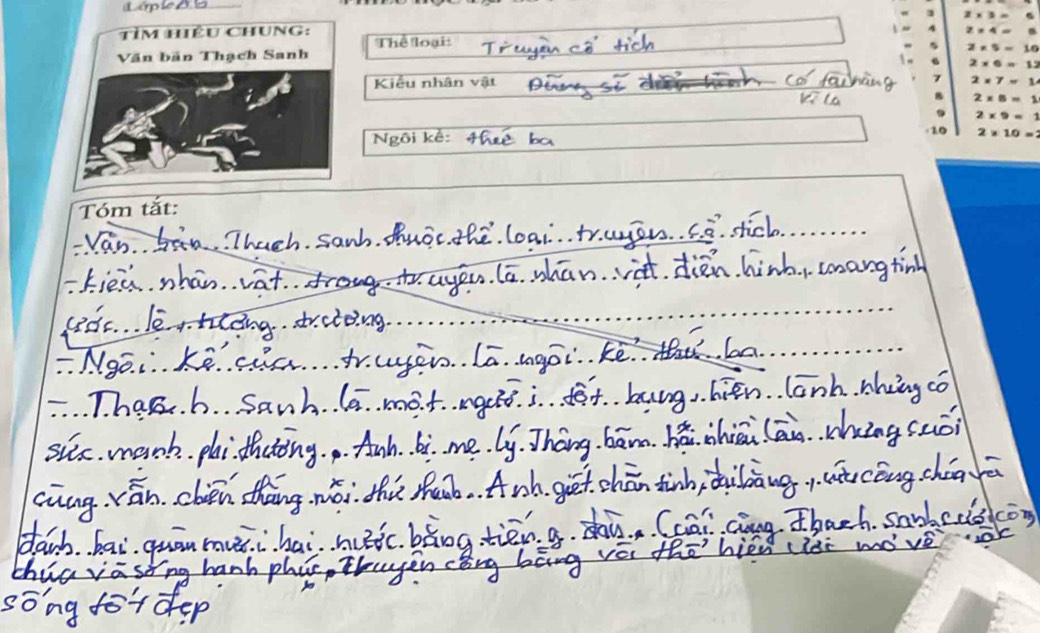 TÌM HIỂU CHUNG:
Văn bản Thạch Sanh
Thể loại: Truyện cổ tích
Kiểu nhân vật Dũng sĩ có tài năng
kì lạ
Ngôi kể: thứ ba
2 x 3 = 6
2 x 4 = 8
2 x 5 = 10
2 x 6 = 12
7 2 x 7 = 1
8 2 x 8 = 1
9 2 x 9 = 1
10 2 x 10 =
Tóm tắt:
- Văn bản Thạch sanh thuộc thể loại truyện cổ tích
- kiểu nhân vật trong truyện là nhân vật điển hình, mang tính
ước lệ, tượng trưng
- Ngôi kể của truyện là ngôi kể thứ ba
- Thạch Sanh là một người tốt bụng, hiền lành nhưng có
sức mạnh phi thường. Anh bị mẹ Lý Thông hãm hại nhiều lần nhưng cuối
cùng vẫn chiến thắng mọi thử thách. Anh giết chằn tinh, đại bàng, cứu công chúa và
đánh bại quân mười hai nước bằng tiếng đàn. Cuối cùng Thạch Sanh cưới công
chúa và sống hạnh phúc. Truyện cũng bằng với thể hiện ước mơ về cuộc
sống tốt đẹp